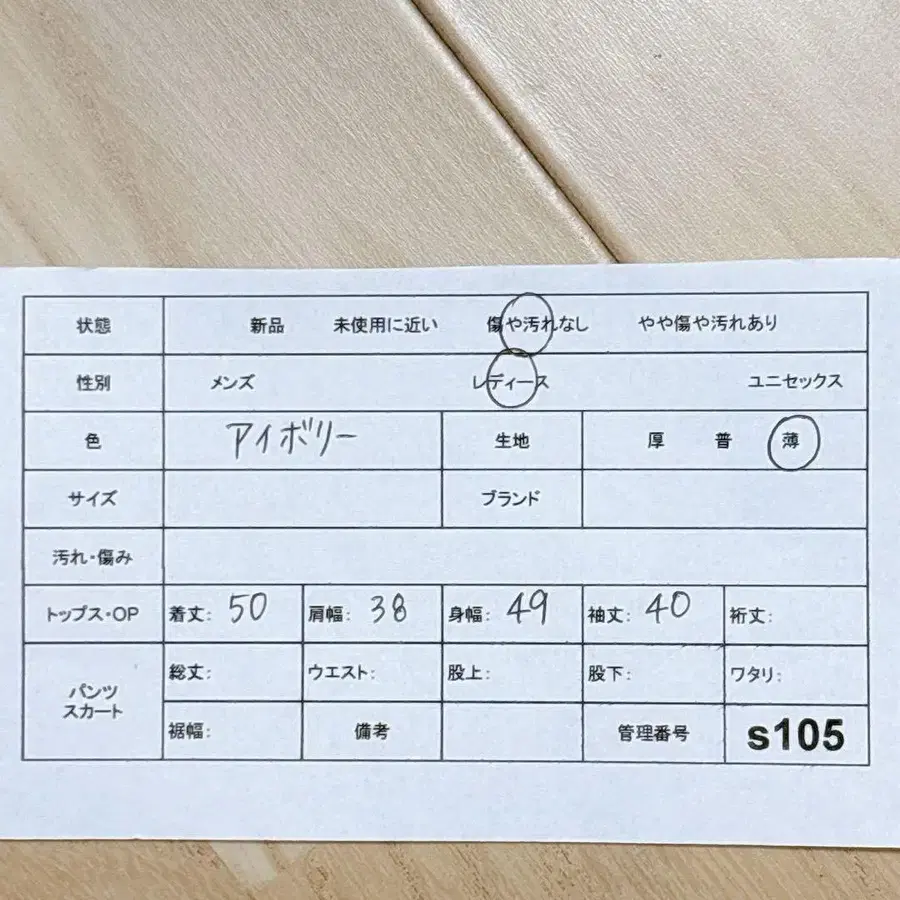 状態 新品 未使用に近い 傷や汚れなし やや傷や汚れあり
性別 メンズ レディース ユニセックス
色 アイボリー 生地 厚 普 薄
サイズ ブランド
汚れ・傷み
トップス・OP 着丈: 50 肩幅: 38 身幅: 49 袖丈: 40 裄丈:
パンツ スカート 総丈: ウエスト: 股上: 股下: ワタリ:
裾幅: 備考 管理番号 s105